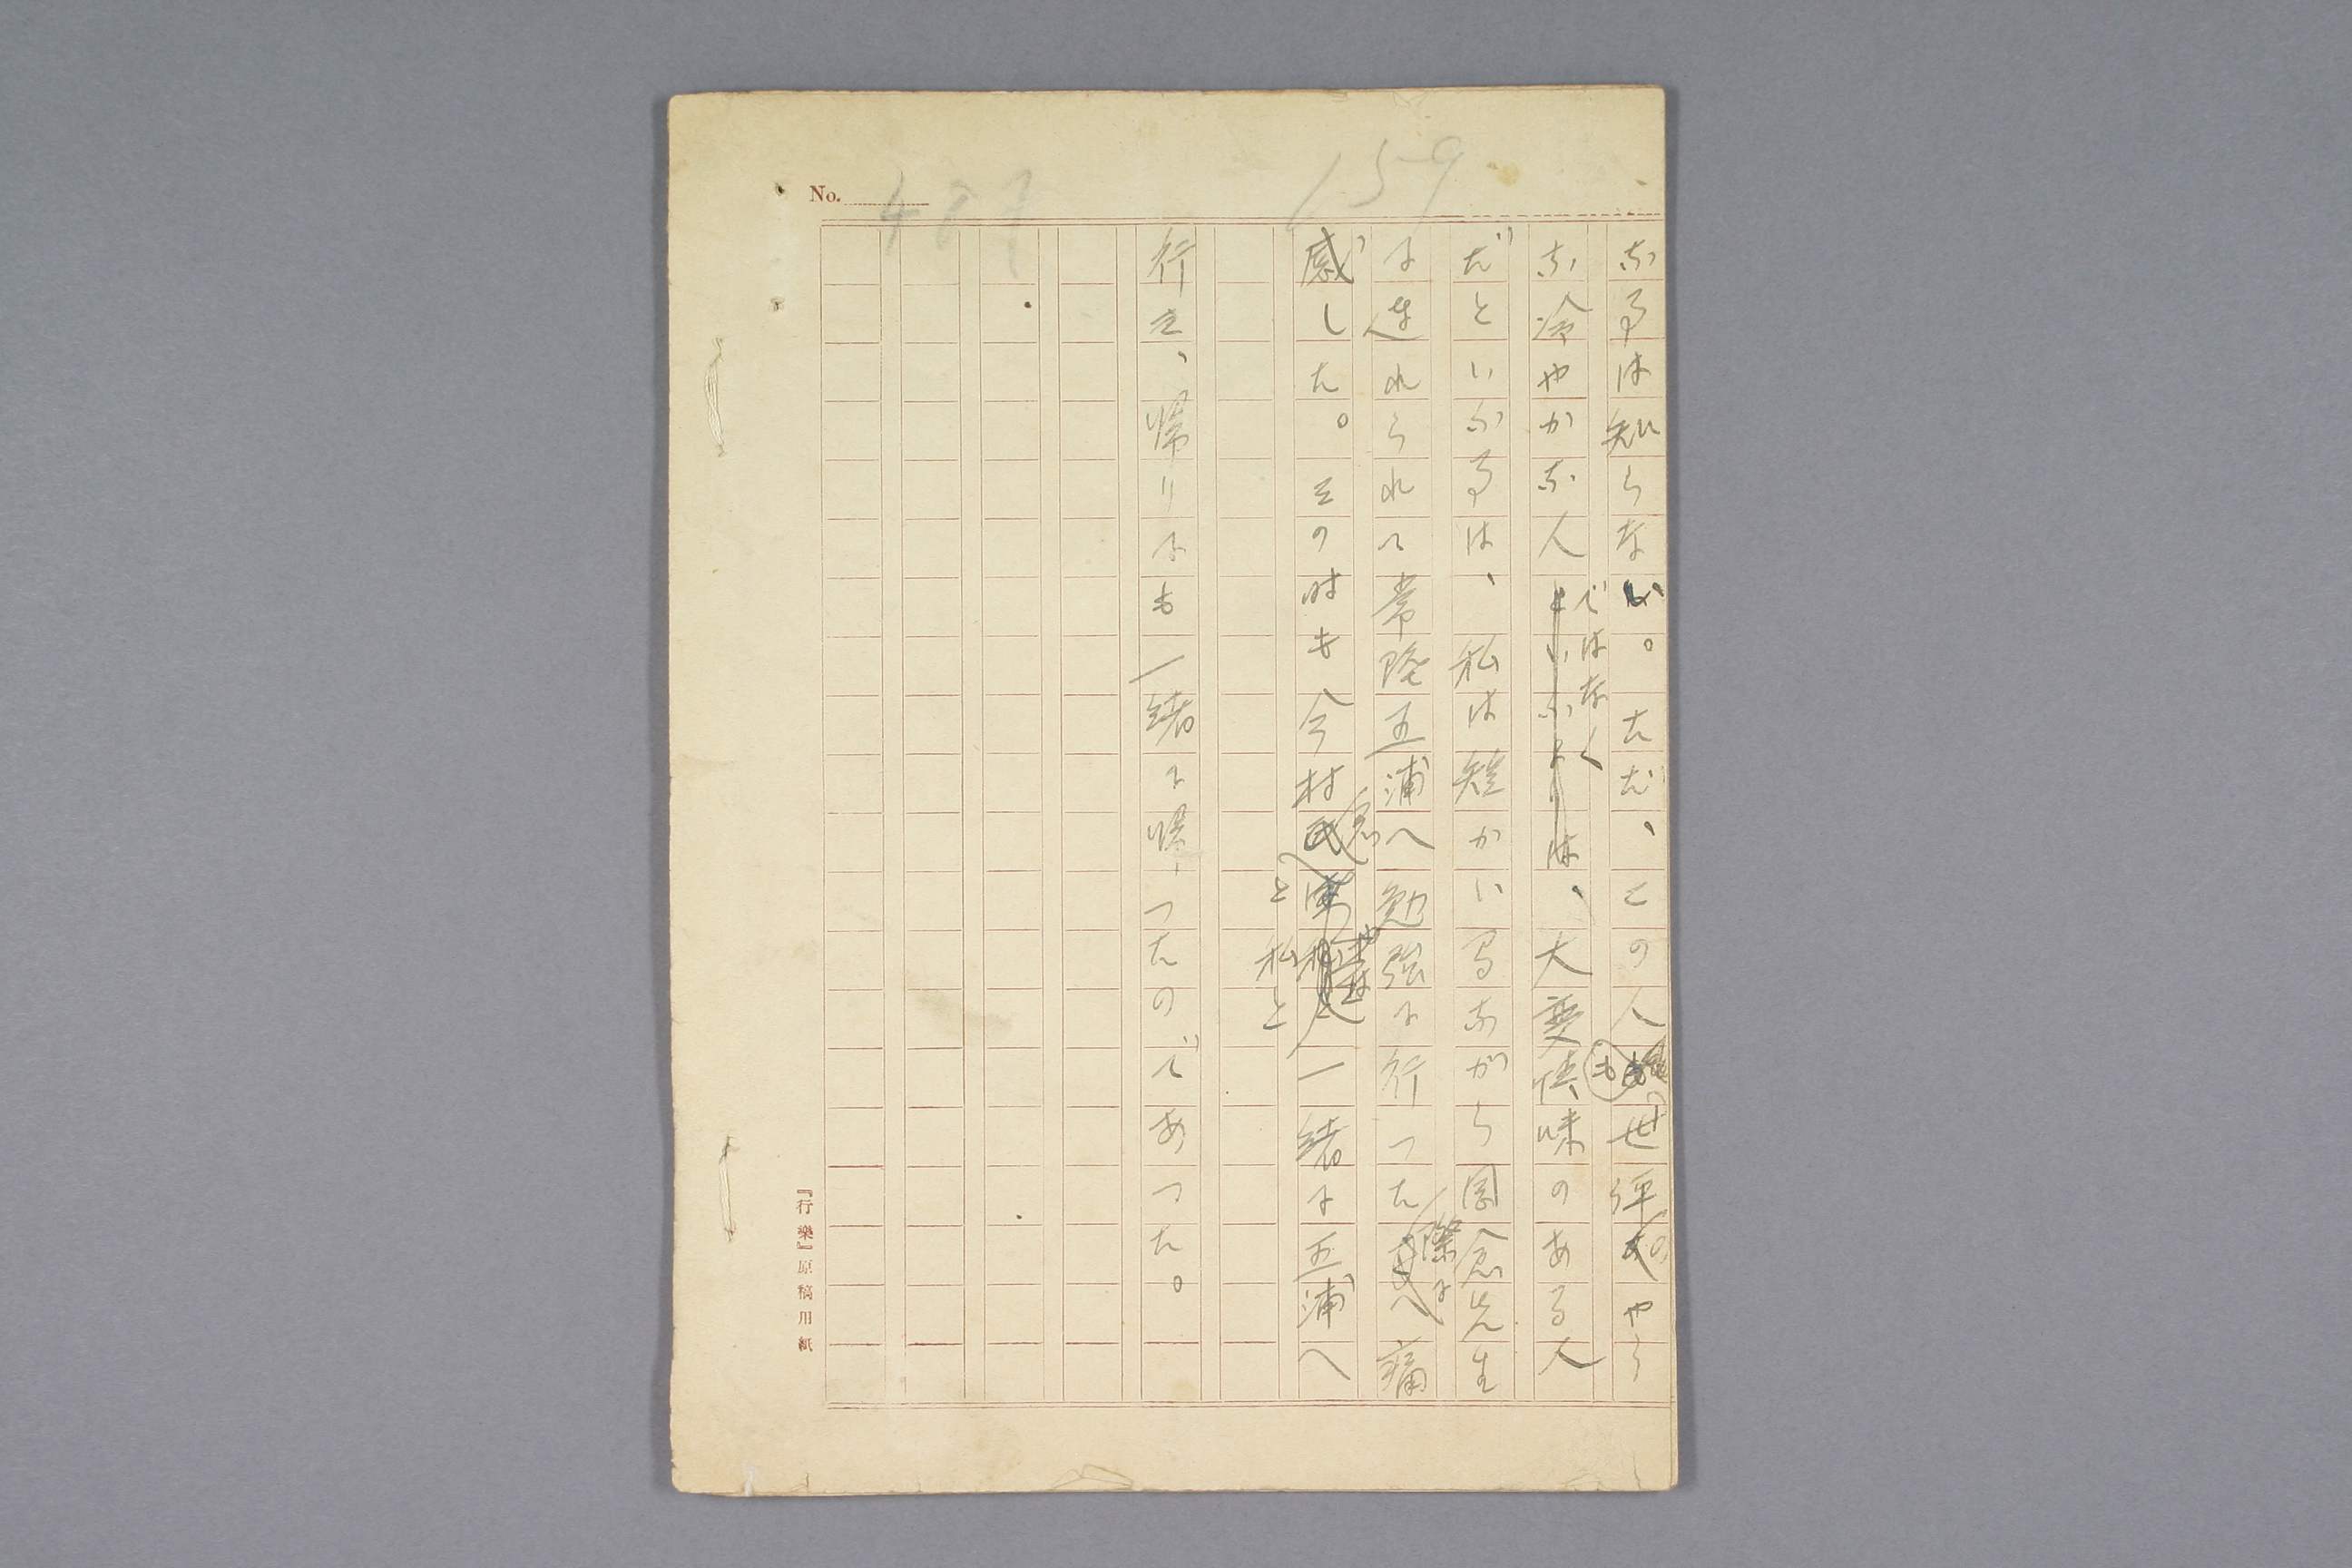 No.
159
な事は知らない。ただ、この人も世評のやう
な冷やかな人ではなく、大変侠味のある人
だといふ事は、私は短かい間ながら岡倉先生
に連れられて常陸五浦へ勉強に行つた際に痛
感した。その時も今村君と私と一緒に五浦へ
行き、帰りにも一緒に帰つたのであつた。
『行樂』原稿用紙